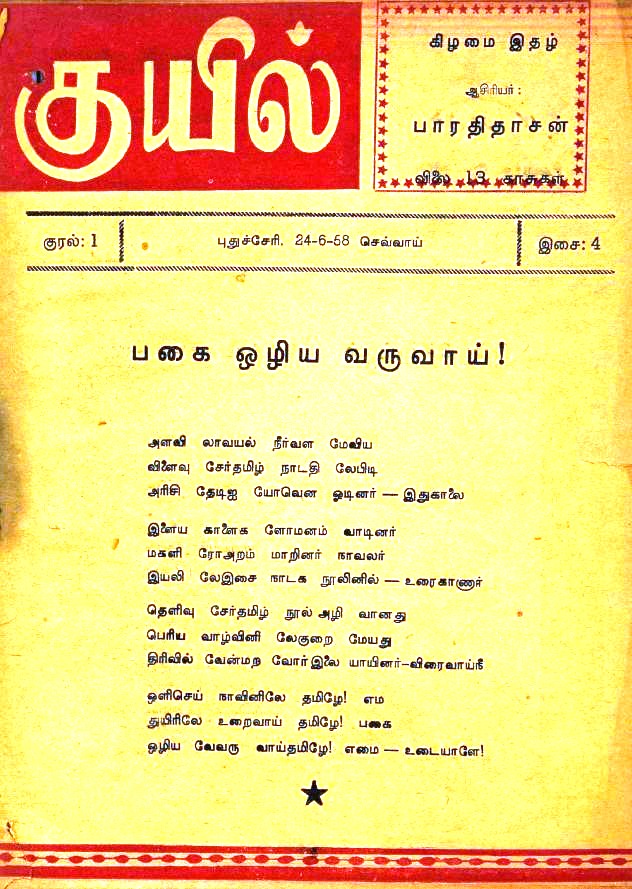 குயில்
கிழமை இதழ்
ஆசிரியர் :
பாரதிதாசன்
விலை 13 காசுகள்
குரல்: 1
புதுச்சேரி. 24-6-58 செவ்வாய்
இசை: 4
பகை ஒழிய வருவாய்!
அளவி லாவயல் நீர்வள மேவிய
விளைவு சேர்தமிழ் நாடதி லேபிடி
அரிசி தேடிஐ யோவென ஓடினர் — இதுகாலை
இளைய காளைக ளோமனம் வாடினர்
மகளி ரோஅறம் மாறினர் நாவலர்
இயலி லேஇசை நாடக நூலினில் — உரைகாணார்
தெளிவு சேர்தமிழ் நூல் அழி வானது
பெரிய வாழ்வினி லேகுறை மேயது
திரிவில் வேன்மற வோர்இலை யாயினர்—விரைவாய்நீ
ஒளிசெய் நாவினிலே தமிழே! எம
துயிரிலே உறைவாய் தமிழே! பகை
ஒழிய வேவரு வாய்தமிழே! எமை — உடையாளே!